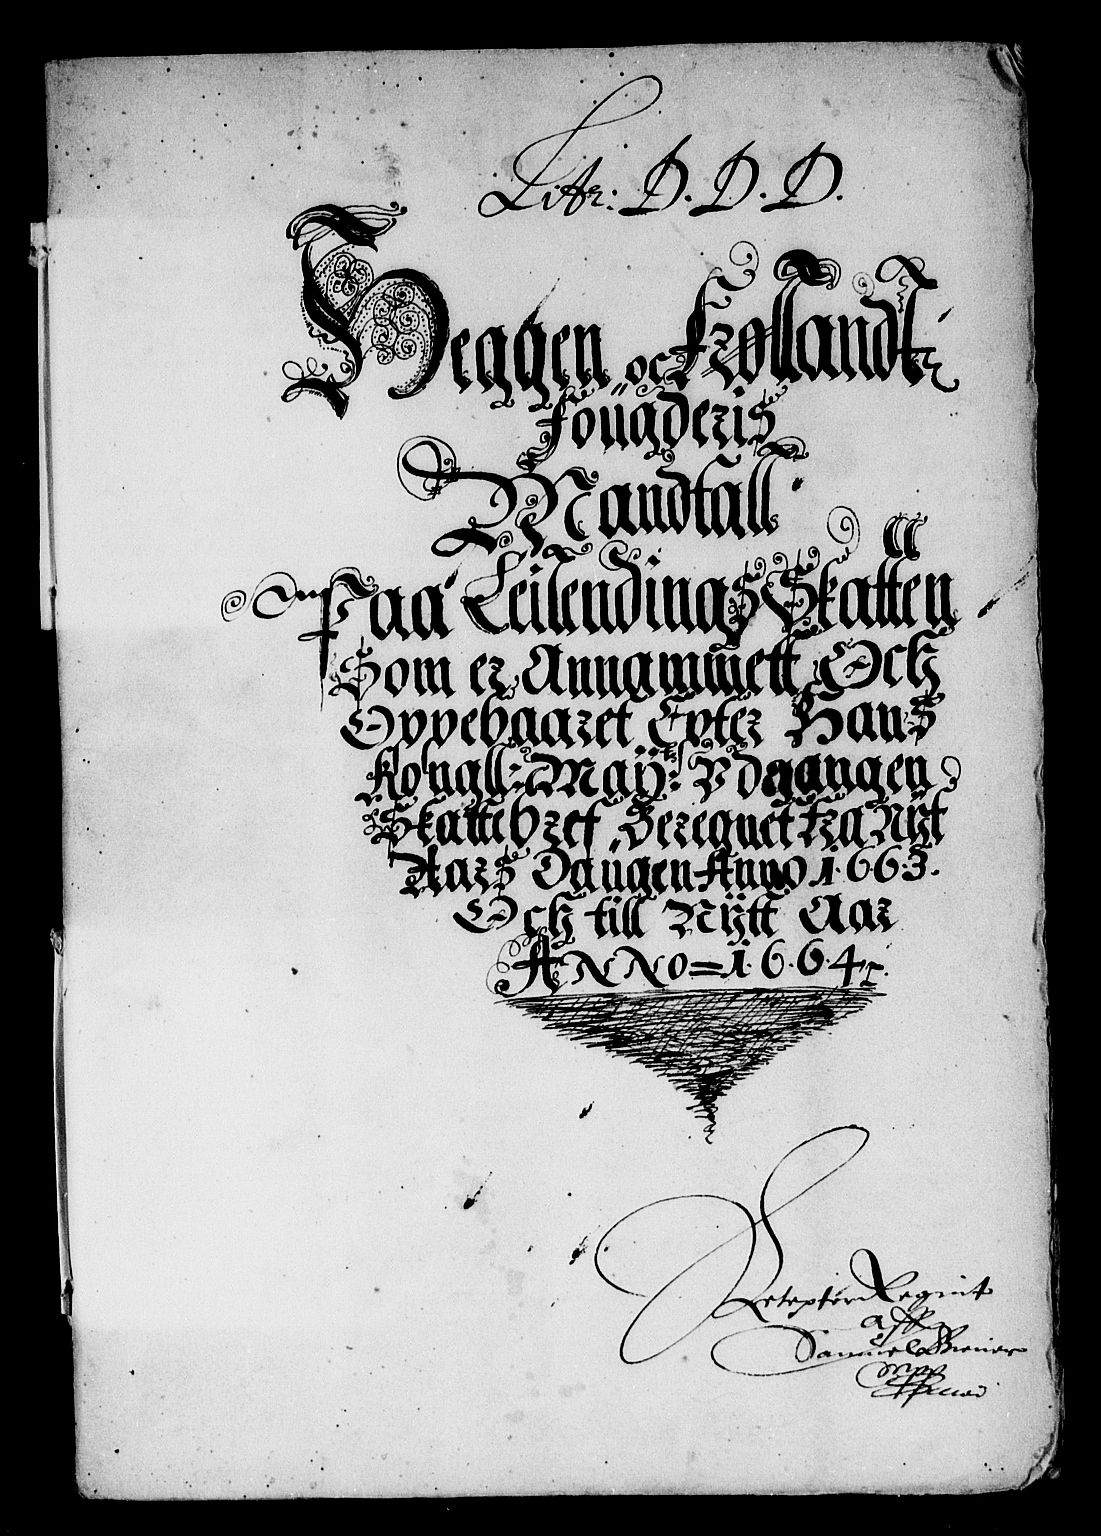 Litr: D. D. D.
Heggen oc Frøllandtz
fougderis
Mandtall
Paa Leilendings Skatten
Som er Annammett Och
Oppebaaret Epter Hans
Kongll: May:tt Vdgangen
Skattebref, Beregnet fra Nytt
Aars Daugen Anno 1663.
Och till Nytt Aar
ANNO = 1664
Samuel
mpp